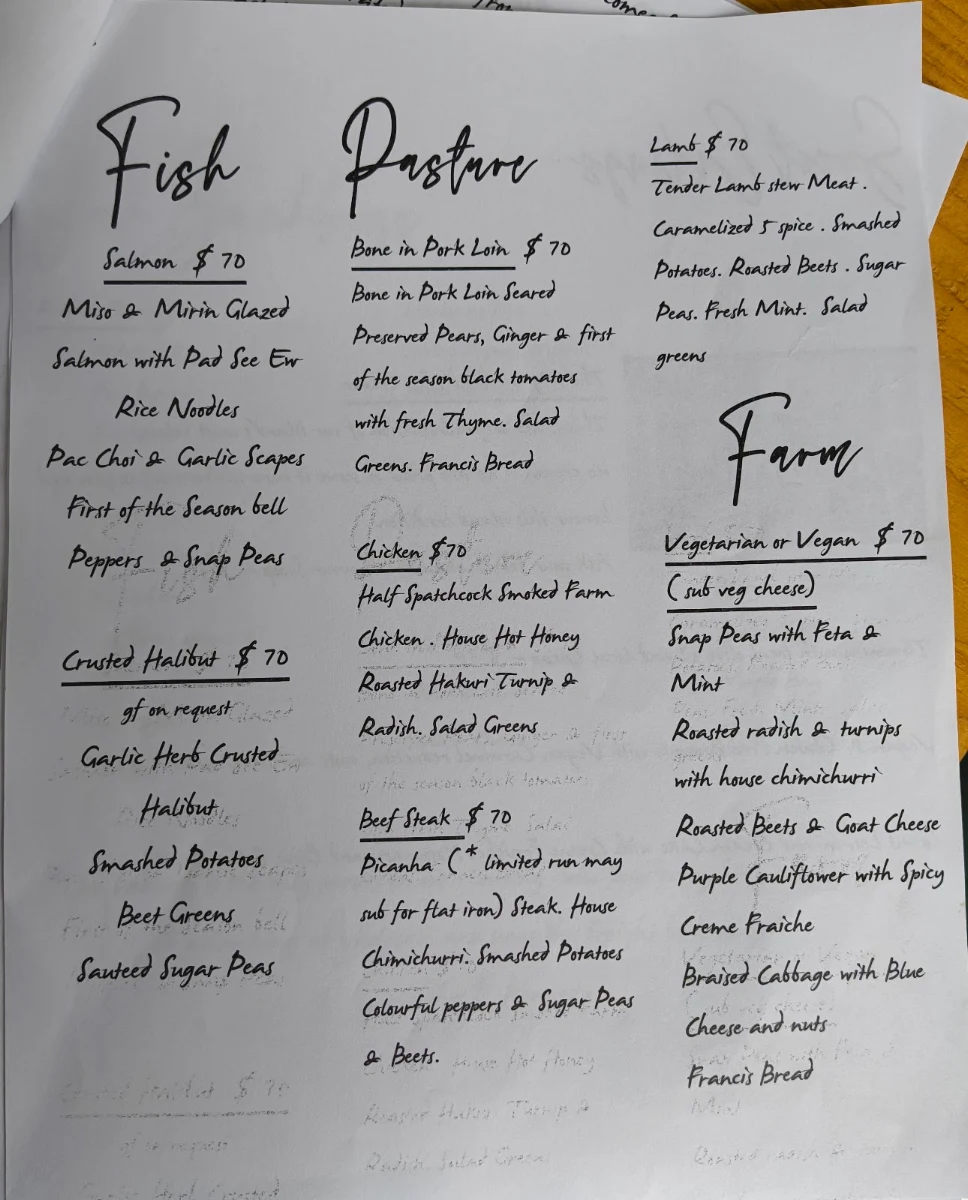 Fish
Salmon $ 70
Miso & Mirin Glazed
Salmon with Pad See Ew
Rice Noodles
Pac Choi & Garlic Scapes
First of the Season bell
Peppers & Snap Peas
Crusted Halibut $ 70
gf on request
Garlic Herb Crusted
Halibut
Smashed Potatoes
Beet Greens
Sauteed Sugar Peas
Pasture
Bone in Pork Loin $ 70
Bone in Pork Loin Seared
Preserved Pears, Ginger & first
of the season black tomatoes
with fresh Thyme. Salad
Greens. Francis Bread
Chicken $70
Half Spatchcock Smoked Farm
Chicken. House Hot Honey
Roasted Hakuri Turnip &
Radish. Salad Greens
Beef Steak $ 70
Picanha (* limited run may
sub for flat iron) Steak. House
Chimichurri. Smashed Potatoes
Colourful peppers & Sugar Peas
& Beets.
Lamb $ 70
Tender Lamb stew Meat.
Caramelized 5 spice. Smashed
Potatoes. Roasted Beets. Sugar
Peas. Fresh Mint. Salad
greens
Farm
Vegetarian or Vegan $ 70
(sub veg cheese)
Snap Peas with Feta &
Mint
Roasted radish & turnips
with house chimichurri
Roasted Beets & Goat Cheese
Purple Cauliflower with Spicy
Creme Fraiche
Braised Cabbage with Blue
Cheese and nuts
Francis Bread